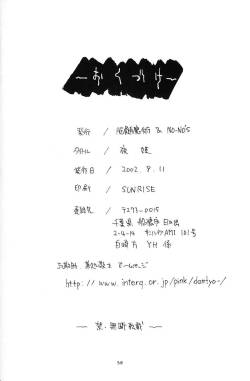 ～おくづけ～
発行 / 肥前屋 & NO-NO'S
タイトル / 夜姫
発行日 / 2002. 8. 11
印刷 / SUNRISE
連絡先 / 〒273-0015
千葉県船橋市日の出
2-4-14 101号
YH 係
http://www.interq.or.jp/pink/dantyo-/
～禁・無断転載～